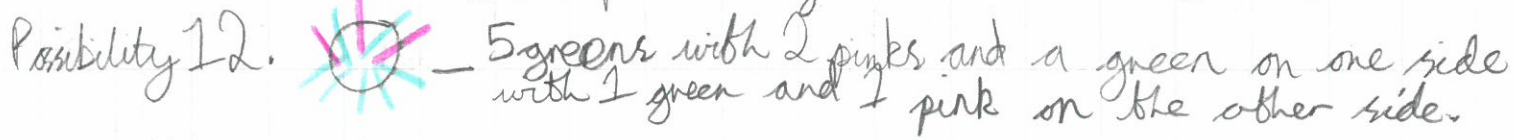 Possibility 12. — 5 greens with 2 pinks and a green on one side
with 1 green and 1 pink on the other side.